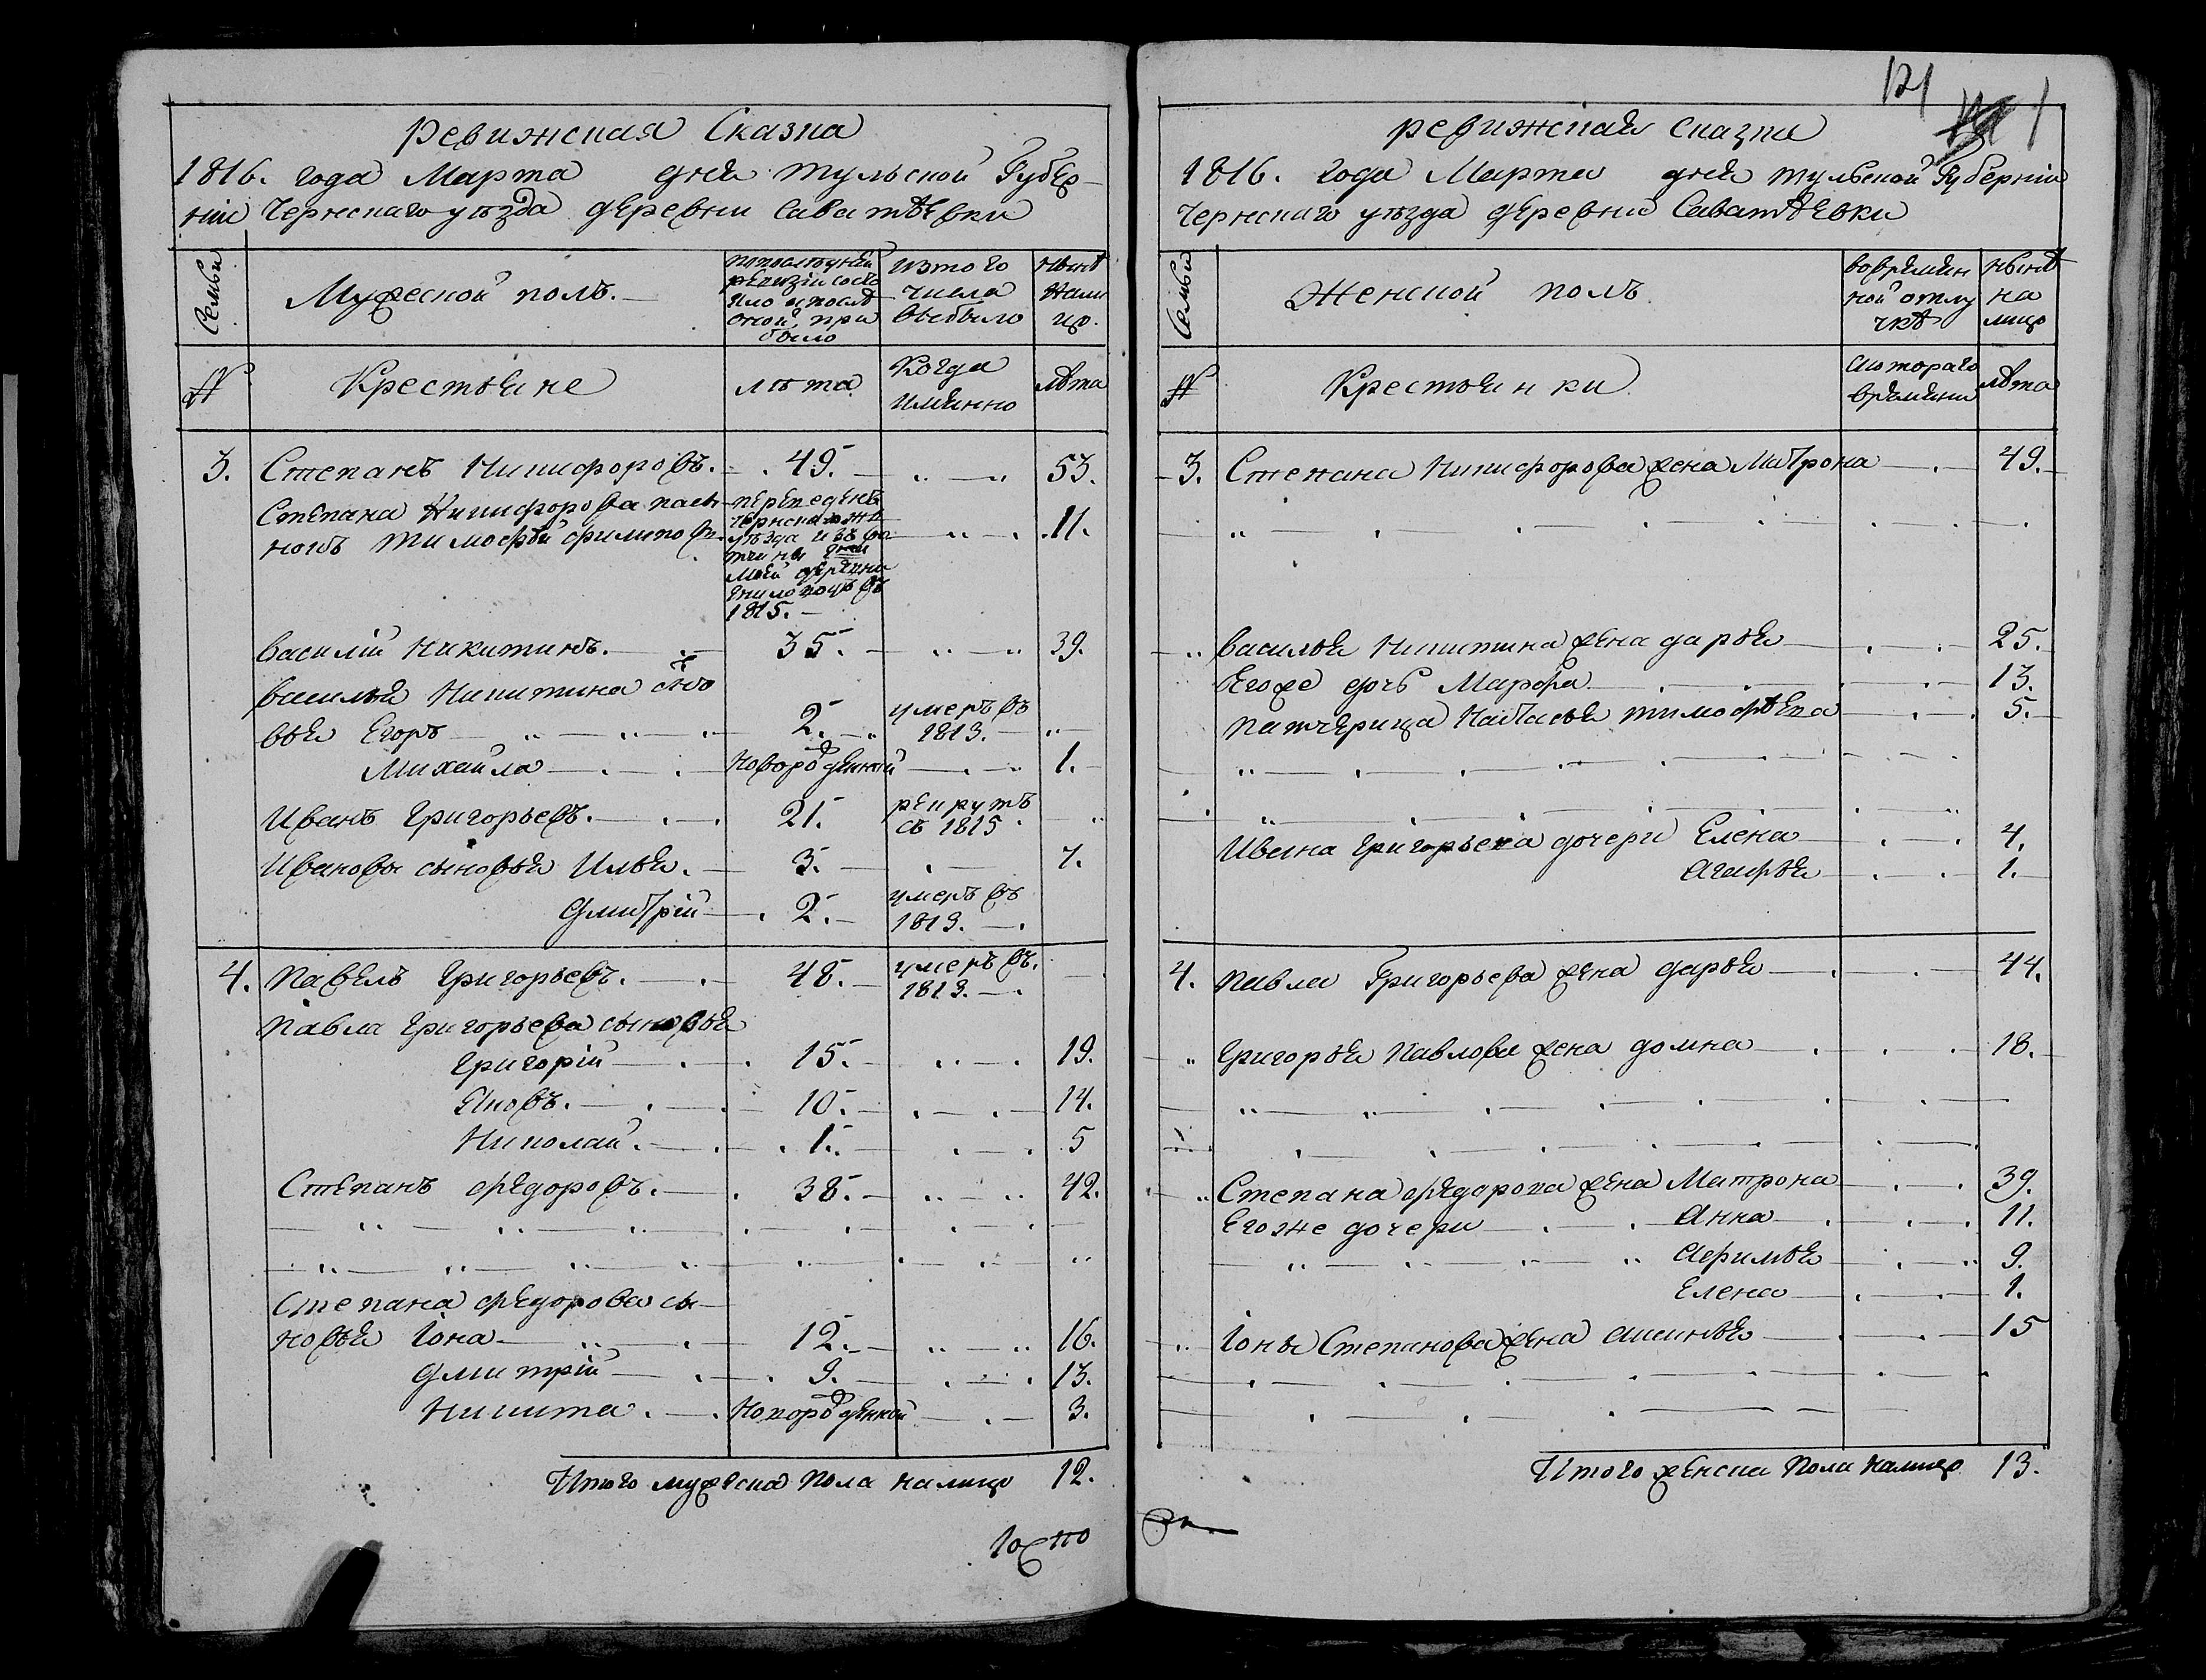 Ревижская Сказка
1816. года Марта дня Тульской Губер-
нии Чернскаго уезда деревни Саватѣевки
Семьи
Мужеской полъ.
По последней
ревизии состо
яло и после
оной при
было
Изтого
числа
выбыло
Нынѣ
нали
цо.
№
Крестьяне
лѣта
Когда
имянно
лѣта
3. Степанъ Никифоровъ. 49. 53.
Степана Никифорова пасы-
нокъ Тимофѣй Филиповъ 11.
1815.
Василий Никитинъ. 35. 39.
Василья Никитина сыно
вья Егоръ 2. умеръ въ 1813.
Михаила Новорожденный 1.
Иванъ Григорьевъ. 21. рекрутъ съ 1815
Ивановы сыновья Илья. 3. 7.
Дмитрій 2. умеръ въ 1813.
4. Павелъ Григорьевъ. 48. умеръ въ. 1813.
Павла Григорьева сыновья
Григорій 15. 19.
Яковъ. 10. 14.
Николай. 1. 5
Степанъ Федоровъ. 38. 42.
Степана Федорова сы-
новья Іона 12. 16.
Дмитрій 9. 13.
Никита. Новорожденной 3.
Итого мужеска пола налицо 12.
121
ревижская сказка
1816. года Марта дня Тульской Губерніи
Чернскаго уезда деревни Саватѣевки
Семьи
Женской полъ
Во времян
ной отлу
чкѣ
Нынѣ
на
лицо
№
Крестьянки
С котораго
времяни
лѣта
3. Степана Никифорова жена Матрона 49.
Василья Никитина жена Дарья 25.
Егоже дочь Марфа 13.
Патчерица Настасья Тимофѣева 5.
Ивана Григорьева дочери Елена 4.
Агафья 1.
4. Павла Григорьева жена Дарья 44.
Григорья Павлова жена Домна 18.
Степана Федорова жена Матрона 39.
Егоже дочери Анна 11.
Афимья 9.
Елена 1.
Іоны Степанова жена Аксинья 15
Итого женска пола налицо 13.